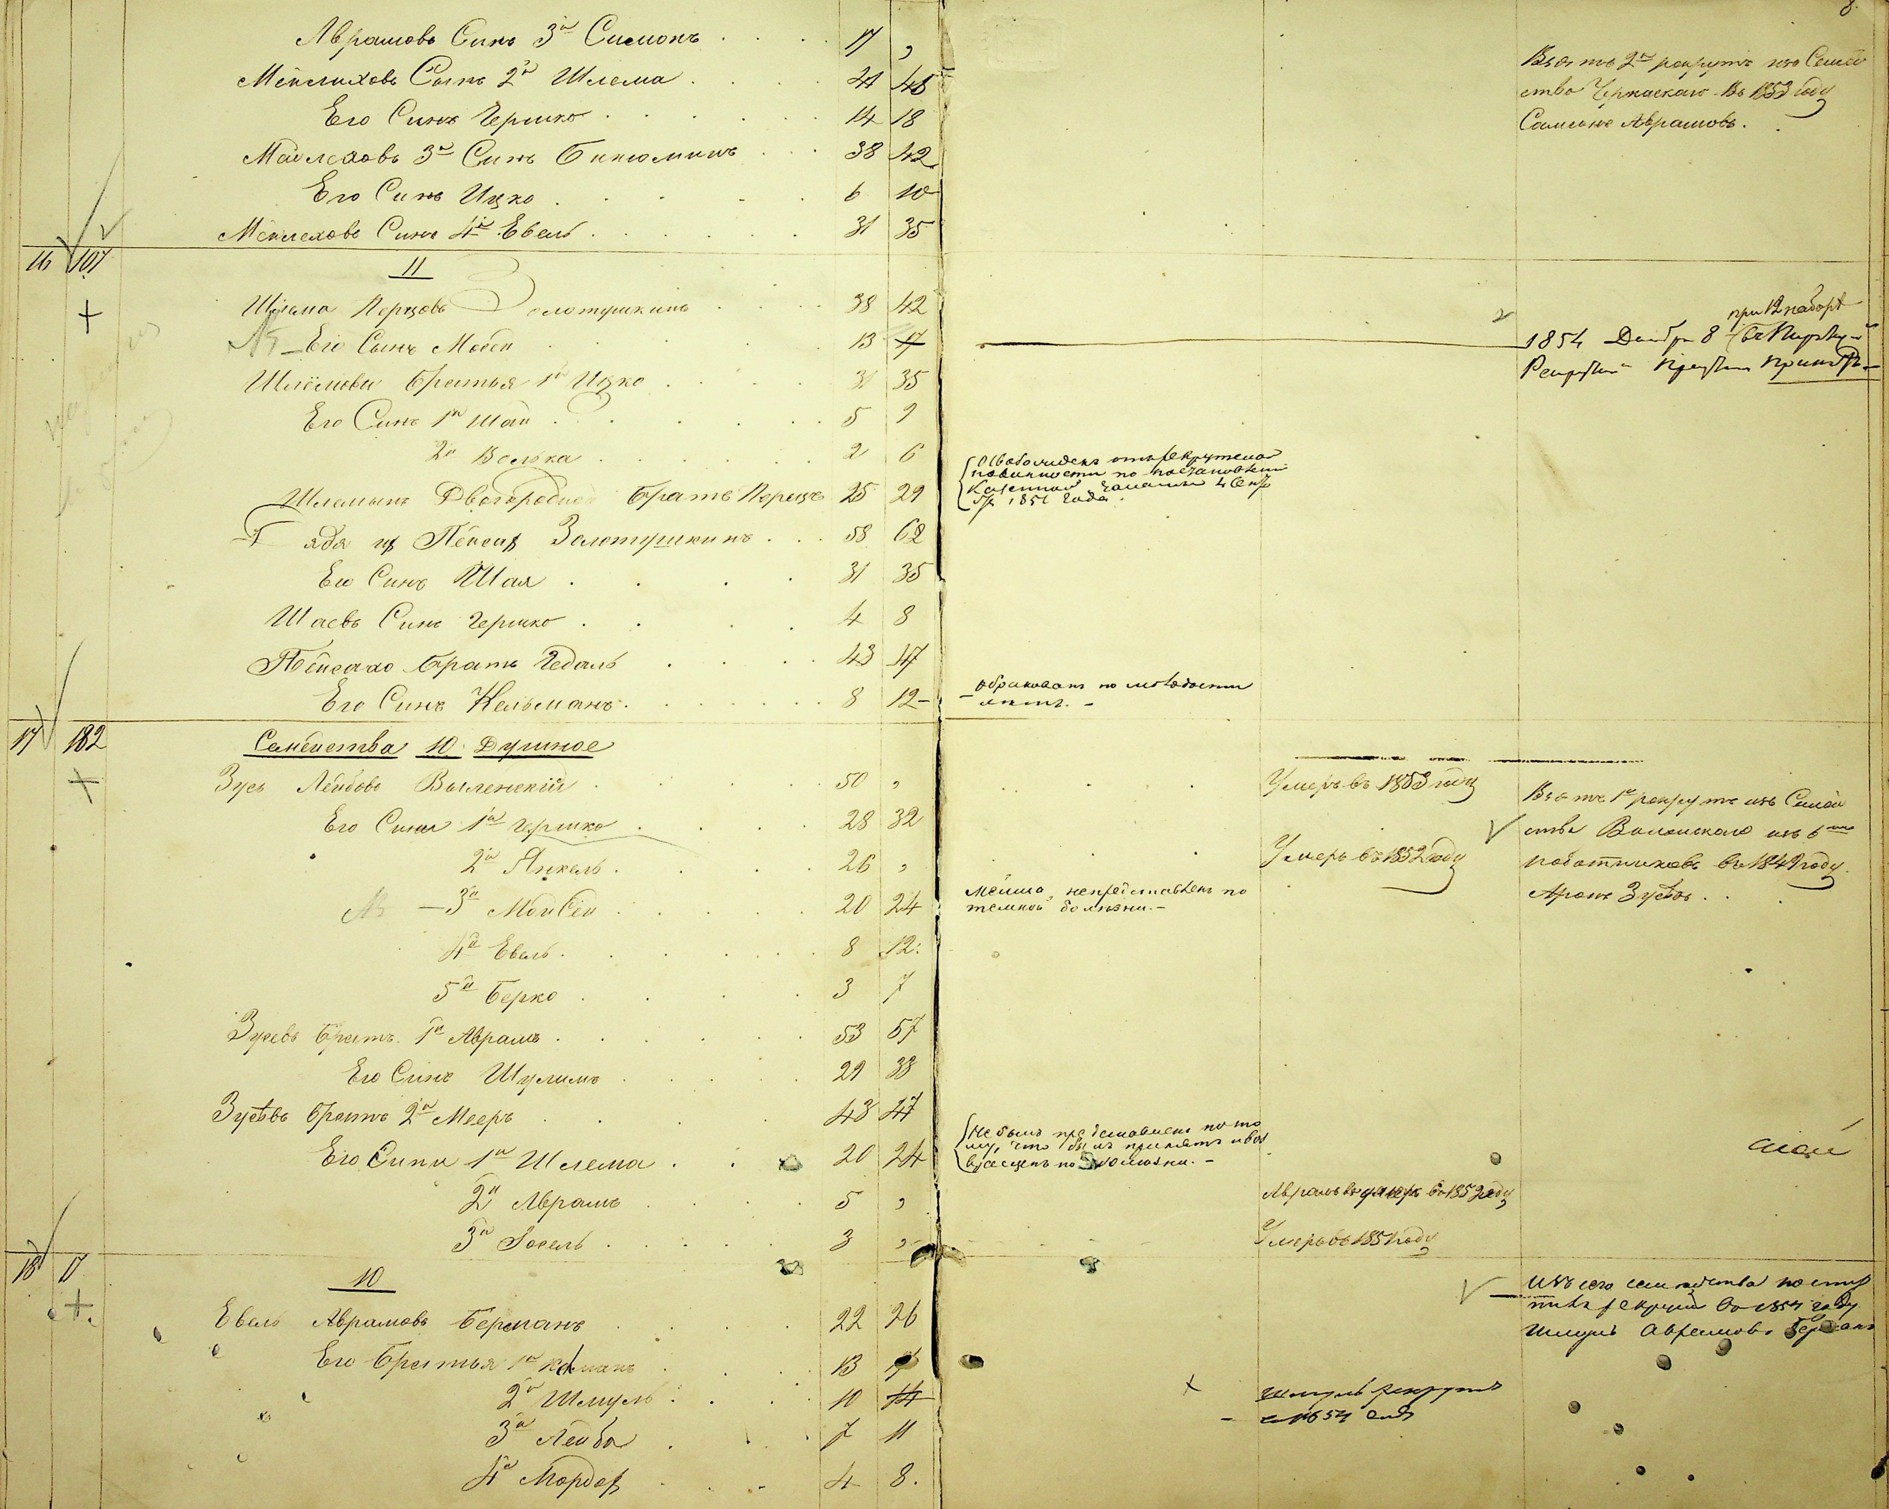 8.
Аврамовъ Сынъ 3й Симонъ 17 „
Взятъ 2й рекрутъ изъ Семей
ства Черкаскаго Въ 1853 году
Самсонъ Аврамовъ.
Мейлиховъ Сынъ 2й Шлема 41 45
Его Сынъ Гершко 14 18
Мейлеховъ 3й Сынъ Бинюминъ 38 42
Его Сынъ Ицко 6 10
Мейлеховъ Сынъ 4й Евель 31 35
16 107
11
Шлема Перцовъ Золотушкинъ 38 42
Его Сынъ Мовша 13 17
при 12 наборѣ
1854 Декабр 8
Шлёмови братья 1й Ицко 31 35
Его Сынъ 1й Шая 5 9
2й Волька 2 6
Шлемынъ Двоюродной братъ Перецъ 25 29
Освобожденъ отъ рекрутской
повинности по постановлен
Казенной Палаты 4 Сентя
бря 1851 года.
Дядя их Пейсах Золотушкинъ 58 62
Его Сынъ Шая 31 35
Шаевъ Сынъ Гершко 4 8
Пейсахо братъ Гедаль 43 47
Его Сынъ Кельманъ 8 12
Обракованъ по молодости
летъ.
17 182
Семейства 10 Душное
Зусь Лейбовъ Виленский 50 „
Умеръ въ 1853 году
Его Сыны 1й Гершко 28 32
2й Янкель 26 „
Умеръ въ 1852 году
Взятъ 1й рекрутъ изъ Семей
ства Виленскаго изъ 6ти
работниковъ въ 1849 году
Аронъ Зусевъ.
3й Мойсей 20 24
непредставленъ по
темной болезни.
4й Евель 8 12
5й Берко 3 7
Зусевъ братъ 1й Аврамъ 53 57
Его Сынъ Шулимъ 29 33
Зусевъ братъ 2й Мееръ 43 47
Его Сыны 1й Шлема 20 24
Не былъ представленъ пото
му, что былъ принятъ и воз
вращенъ по болезни.
2й Аврамъ 5 „
Аврамъ умеръ въ 1852 году
3й Іосель 3 „
Умеръ въ 1851 году
18 17
10
Евель Аврамовъ Берманъ 22 26
Изъ сего семейства поступ
рекрутъ въ 1854 году
Шмуль Аврамовъ Берманъ
Его братья 1й Калманъ 13 17
2й Шмуль 10 14
Шмуль рекрутъ
1854 года
3й Лейба 7 11
4й Мордох 4 8